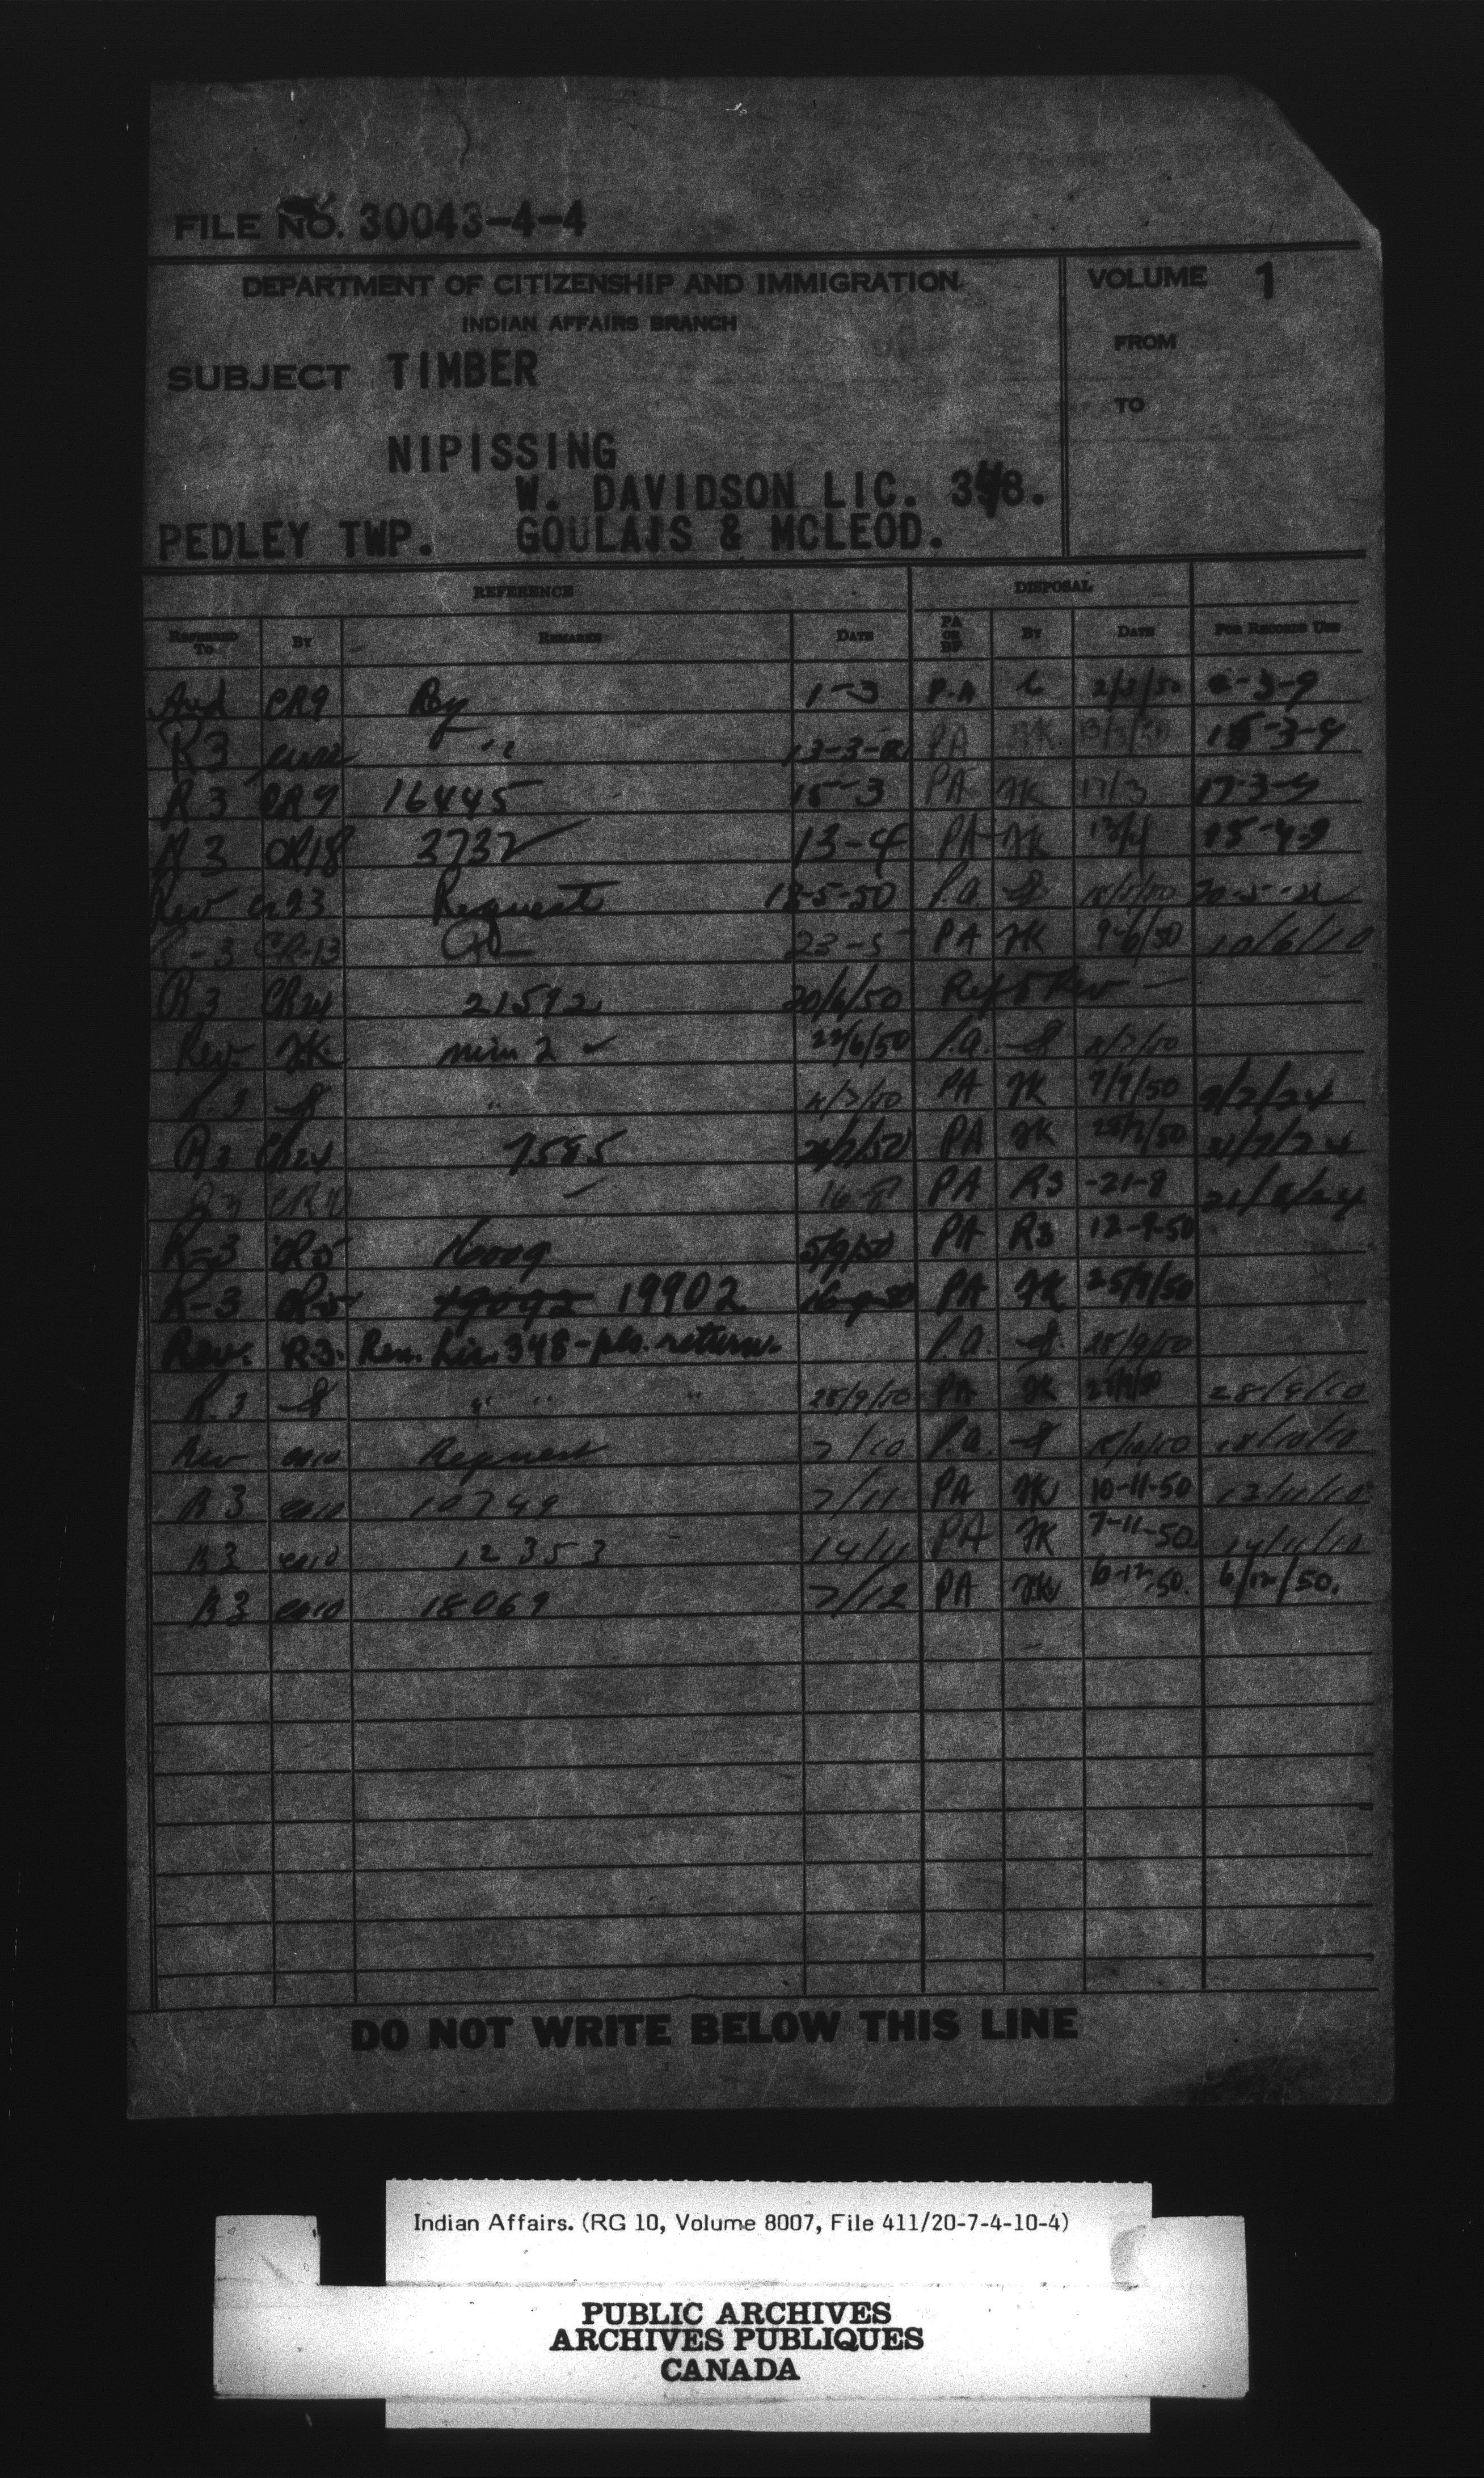 FILE NO. 30043-4-4
DEPARTMENT OF CITIZENSHIP AND IMMIGRATION
INDIAN AFFAIRS BRANCH
VOLUME 1
FROM
TO
SUBJECT TIMBER
NIPISSING
W. DAVIDSON LIC. 348.
PEDLEY TWP. GOULAIS & MCLEOD.
REFERENCE DISPOSAL
REFERRED TO BY REMARKS DATE PA OR BF BY DATE FOR RECORDS USE
CR9 1-3 P.A 2/3/50
R3 " PA JK 13/3/50 15-3-9
R3 CR9 16445 15-3 PA JK 17/3 17-3-9
R3 CR18 3737 13-4 PA JK 15-4-9
Rev CR23 Request 18-5-50 P.A.
R-3 CR-13 23-5 PA JK 9/6/50 10/6/10
R3 CR24 21592 20/6/50 Ref to Rev
Rev. JK min 2 22/6/50 P.A.
R.3 " PA JK 7/7/50
R3 CR24 7585 PA JK 25/7/50 31/7/24
16-8 PA R3 -21-8 21/8/24
R-3 CR5 5/9/50 PA R3 12-9-50
R-3 19902 PA JK 25/9/50
Rev. R3. Ren. Lic. 348 - pls. return. P.A. 25/9/50
R.3 " " " 25/9/50 PA JK 28/9/10
Rev CR10 Request 7/10 P.A. 18/10/10
R3 CR10 10749 7/11 PA JK 10-11-50 13/11/10
R3 CR10 12353 14/11 PA JK 7-11-50 14/11/10
R3 CR10 18069 7/12 PA JK 6-12-50. 6/12/50.
DO NOT WRITE BELOW THIS LINE
Indian Affairs. (RG 10, Volume 8007, File 411/20-7-4-10-4)
PUBLIC ARCHIVES
ARCHIVES PUBLIQUES
CANADA